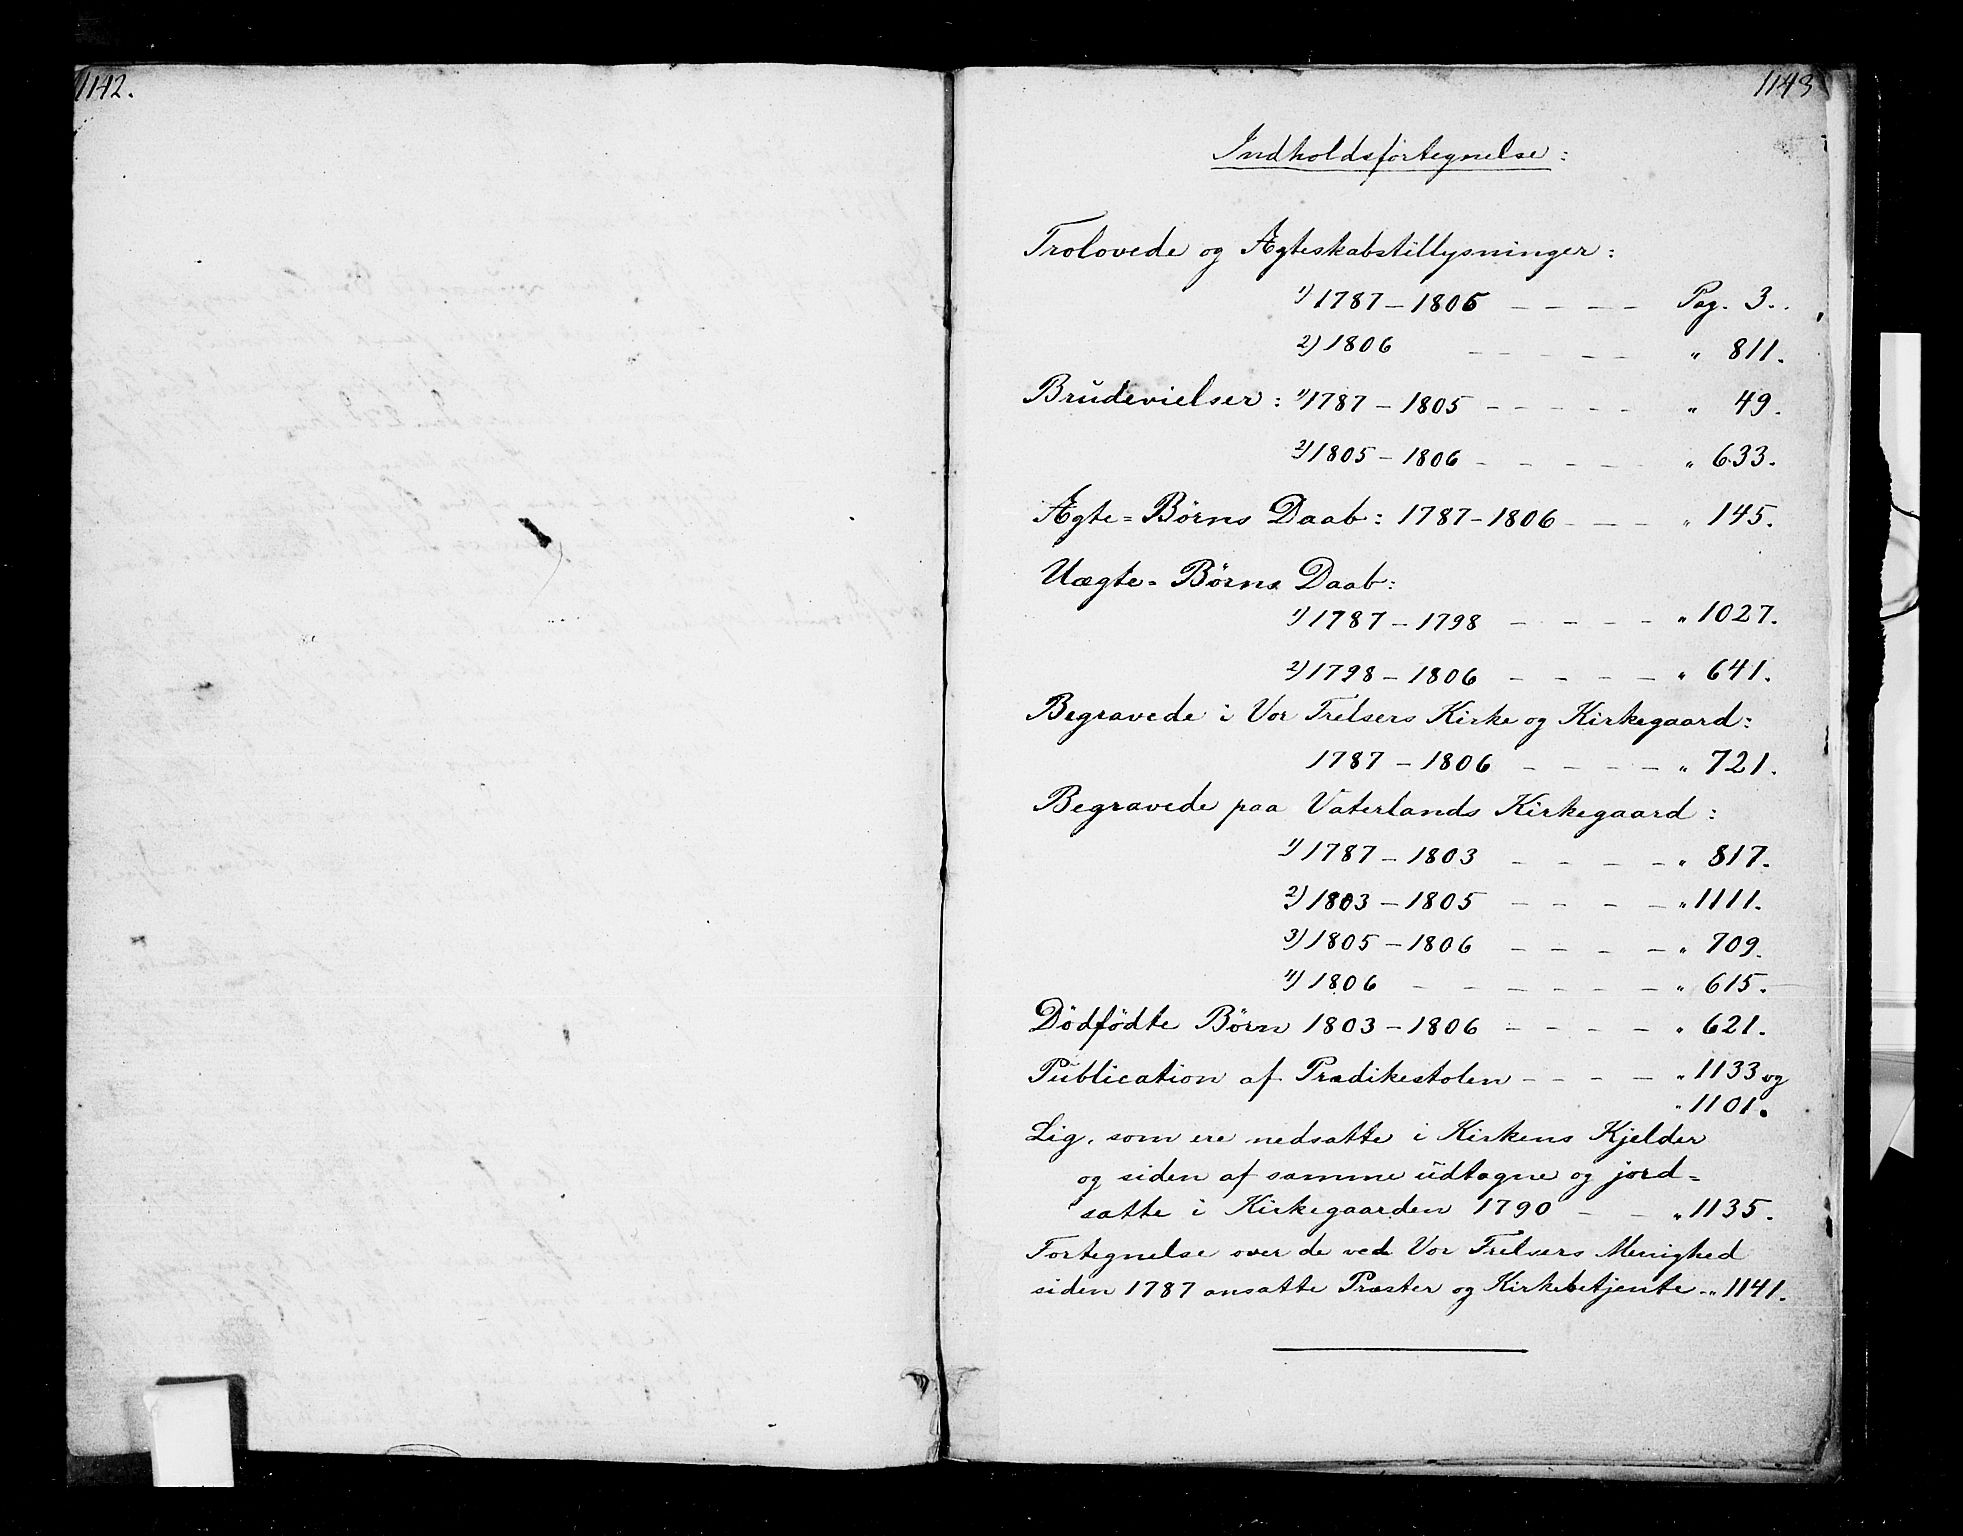 1142.
1143
Indholdsfortegnelse:
Trolovede og Ægteskabstillysninger:
1) 1787 – 1806 – – – – Pag. 3.
2) 1806 – – – – – " 811.
Brüdevielser: 1) 1787 – 1805 – – – – – " 49.
2) 1805 – 1806 – – – – – " 633.
Ægte=Børns Daab: 1787–1806 – – – " 145.
Uægte=Børns Daab:
1) 1787 – 1798 – – – – " 1027.
2) 1798 – 1806 – – – – – " 641.
Begravede i Vor Frelsers Kirke og Kirkegaard:
1787 – 1806 – – – – – " 721.
Begravede paa Vaterlands Kirkegaard:
1) 1787 – 1803 – – – – – " 817.
2) 1803 – 1805 – – – – " 1111.
3) 1805 – 1806 – – – – " 709.
4) 1806 – – – – – – – " 615.
Dödfödte Börn 1803 – 1806 – – – – " 621.
Püblication af Prædikestolen – – – – " 1133 og
" 1101.
Lig, som ere nedsatte i Kirkens Kjelder
og siden af samme üdtagne og jord=
satte i Kirkegaarden 1790 – – " 1135.
Fortegnelse over de ved Vor Frelsers Menighed
siden 1787 ansatte Præster og Kirkebetjente – " 1141.